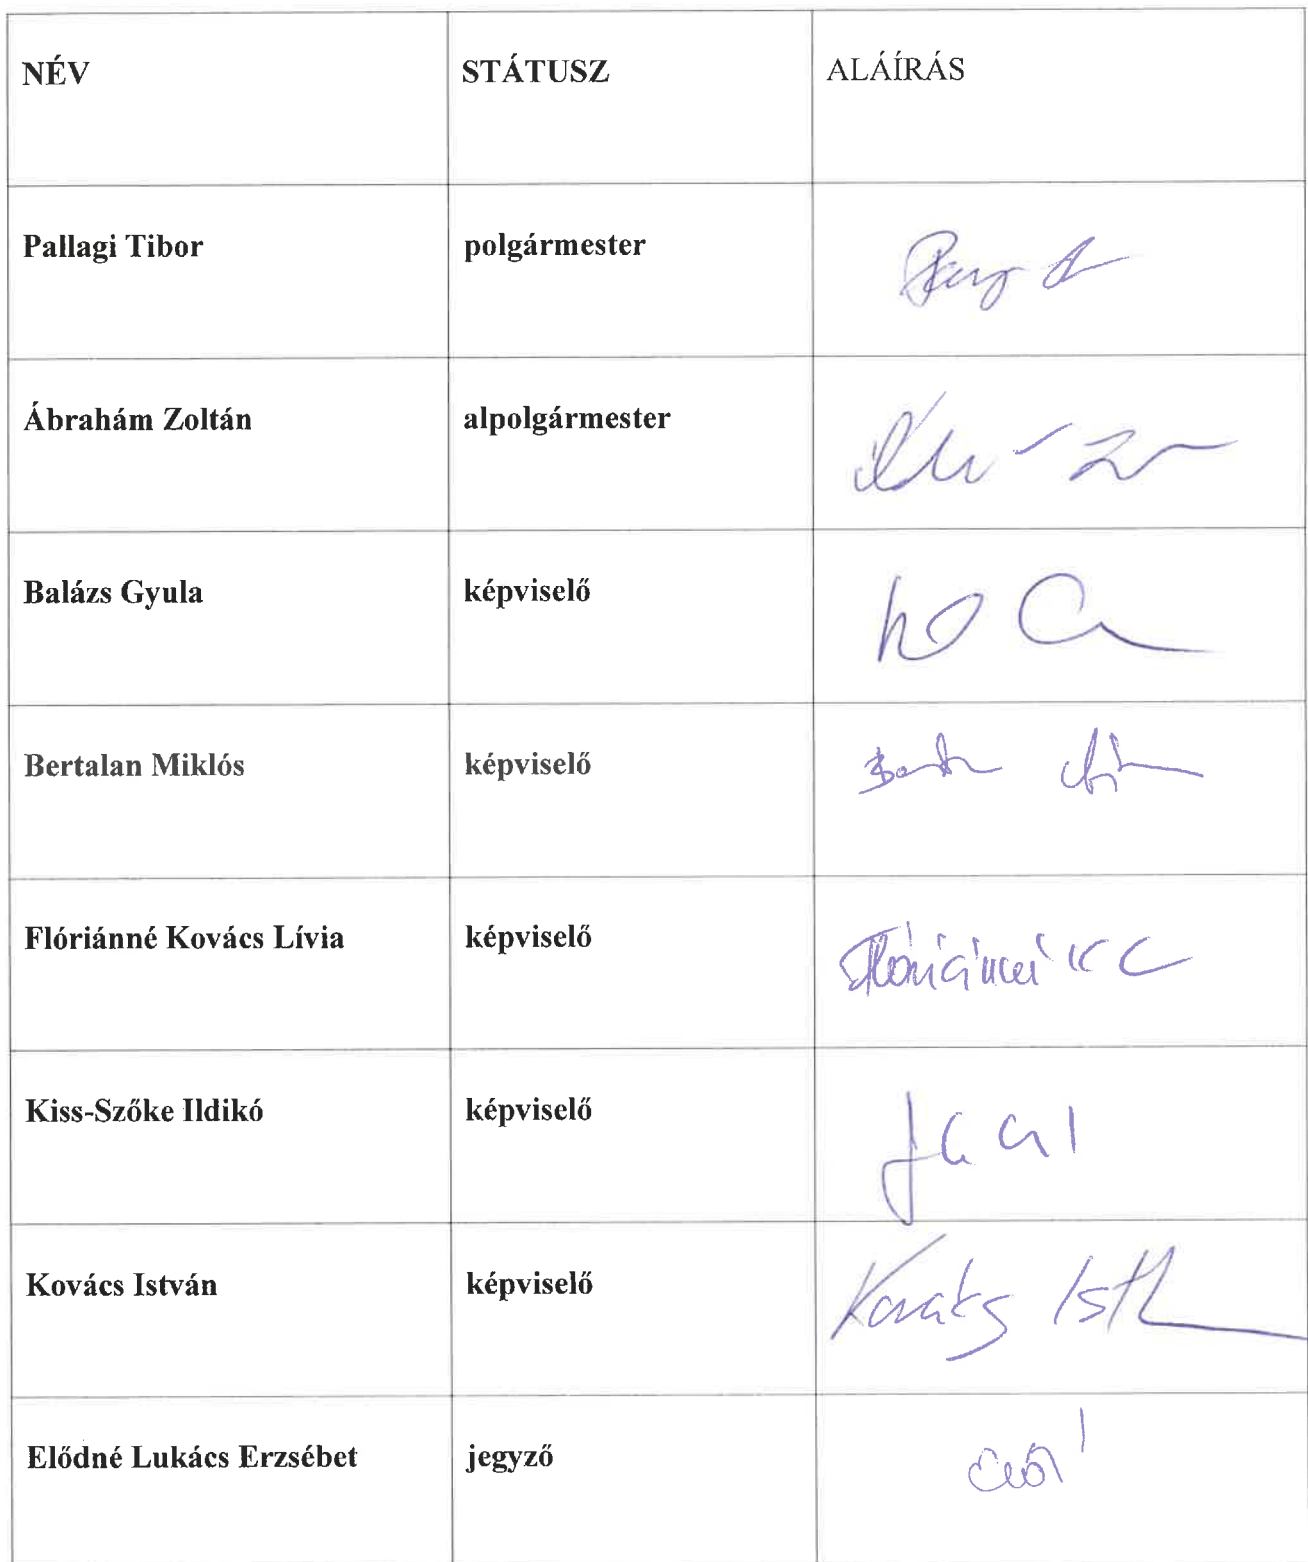 NÉV STÁTUSZ ALÁÍRÁS
Pallagi Tibor polgármester
Ábrahám Zoltán alpolgármester
Balázs Gyula képviselő
Bertalan Miklós képviselő
Flóriánné Kovács Lívia képviselő Flóriánné K L
Kiss-Szőke Ildikó képviselő
Kovács István képviselő Kovács
Elődné Lukács Erzsébet jegyző